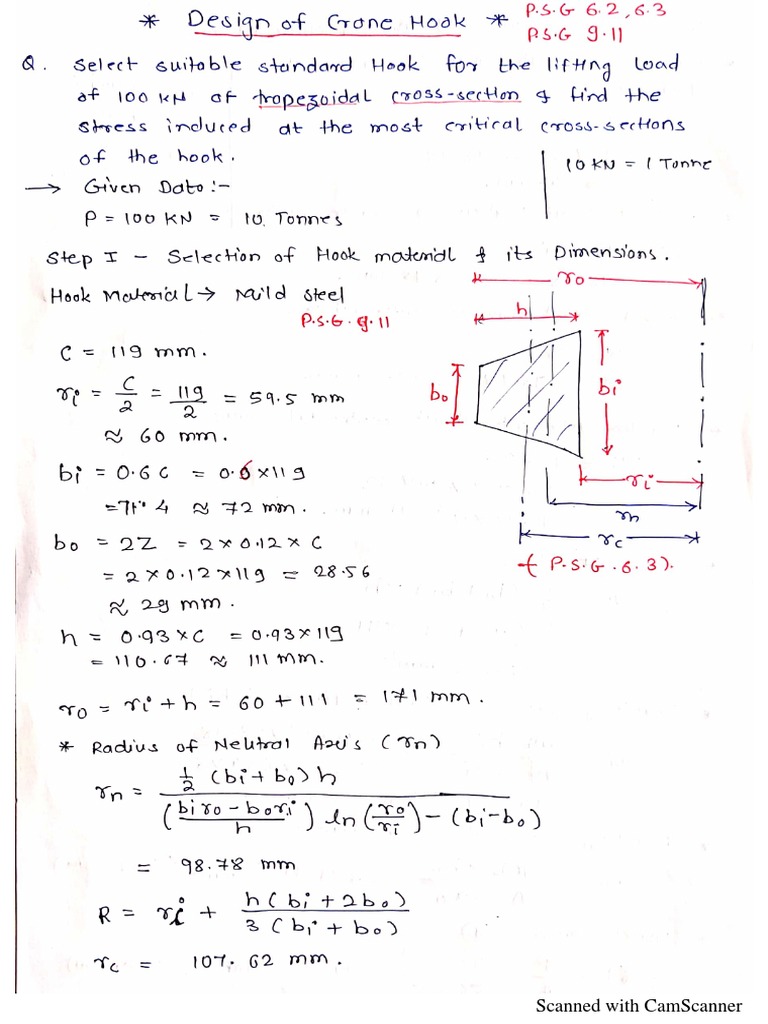 * Design of Crane Hook * P.S.G 6.2, 6.3
P.S.G 9.11
Q. Select suitable standard Hook for the lifting load
of 100 KN of trapezoidal cross-section & find the
stress induced at the most critical cross-sections
of the hook.
10 KN = 1 Tonne
→ Given Data :-
P = 100 KN = 10. Tonnes
Step I - Selection of Hook material & its Dimensions.
Hook Material → Mild steel
P.S.G. 9.11
C = 119 mm.
ri = C/2 = 119/2 = 59.5 mm
≈ 60 mm.
bi = 0.6 C = 0.6 × 119
= 71.4 ≈ 72 mm.
bo = 2Z = 2 × 0.12 × C
= 2 × 0.12 × 119 = 28.56
≈ 29 mm.
h = 0.93 × C = 0.93 × 119
= 110.67 ≈ 111 mm.
ro = ri + h = 60 + 111 = 171 mm.
ro
h
bo
bi
ri
rn
rc
( P.S.G. 6.3).
* Radius of Neutral Axis (rn)
rn = 1/2 (bi + bo) h / (bi ro - bo ri / h) ln (ro/ri) - (bi - bo)
= 98.78 mm
R = ri + h ( bi + 2 bo) / 3 ( bi + bo)
rc = 107.62 mm.
Scanned with CamScanner